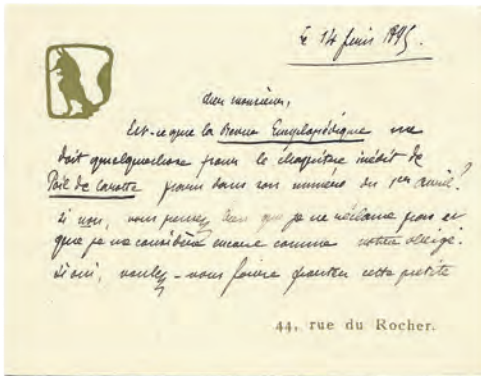 le 14 juin 1895.
Cher monsieur,
Est-ce que la Revue Encyclopédique me
doit quelquechose pour le chapitre inédit de
Poil de Carotte paru dans son numéro du 1er avril?
Si non, vous pensez bien que je ne réclame pas et
que je me considère encore comme votre obligé.
Si oui, voulez-vous faire cette petite
44, rue du Rocher.